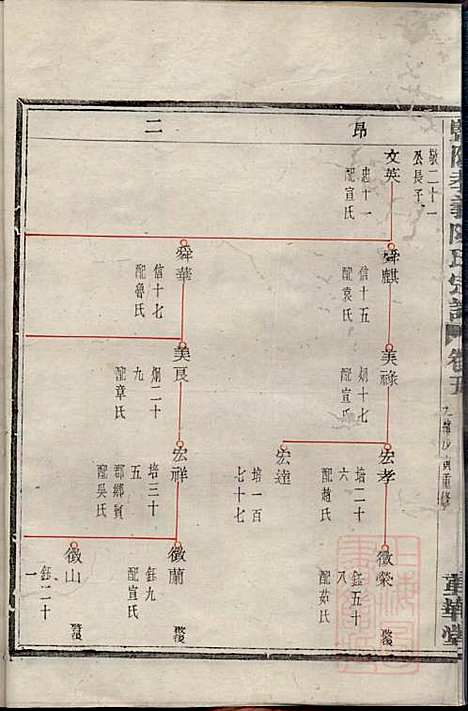 昂 二
敬二十一
公長子
文英
忠十一
配宣氏
舜麒
信十五
配袁氏
舜華
信十七
配魯氏
美祿
炯十七
配宣氏
美良
炯二十
九
配章氏
宏孝
培二十
六
配趙氏
宏達
培一百
七十七
宏祥
培三十
五
鄉賓
配吳氏
徵榮
鈺五十
八
配茹氏
徵蘭
鈺九
配宣氏
徵山
鈺二十
一
氏宗譜
卷五
華堂